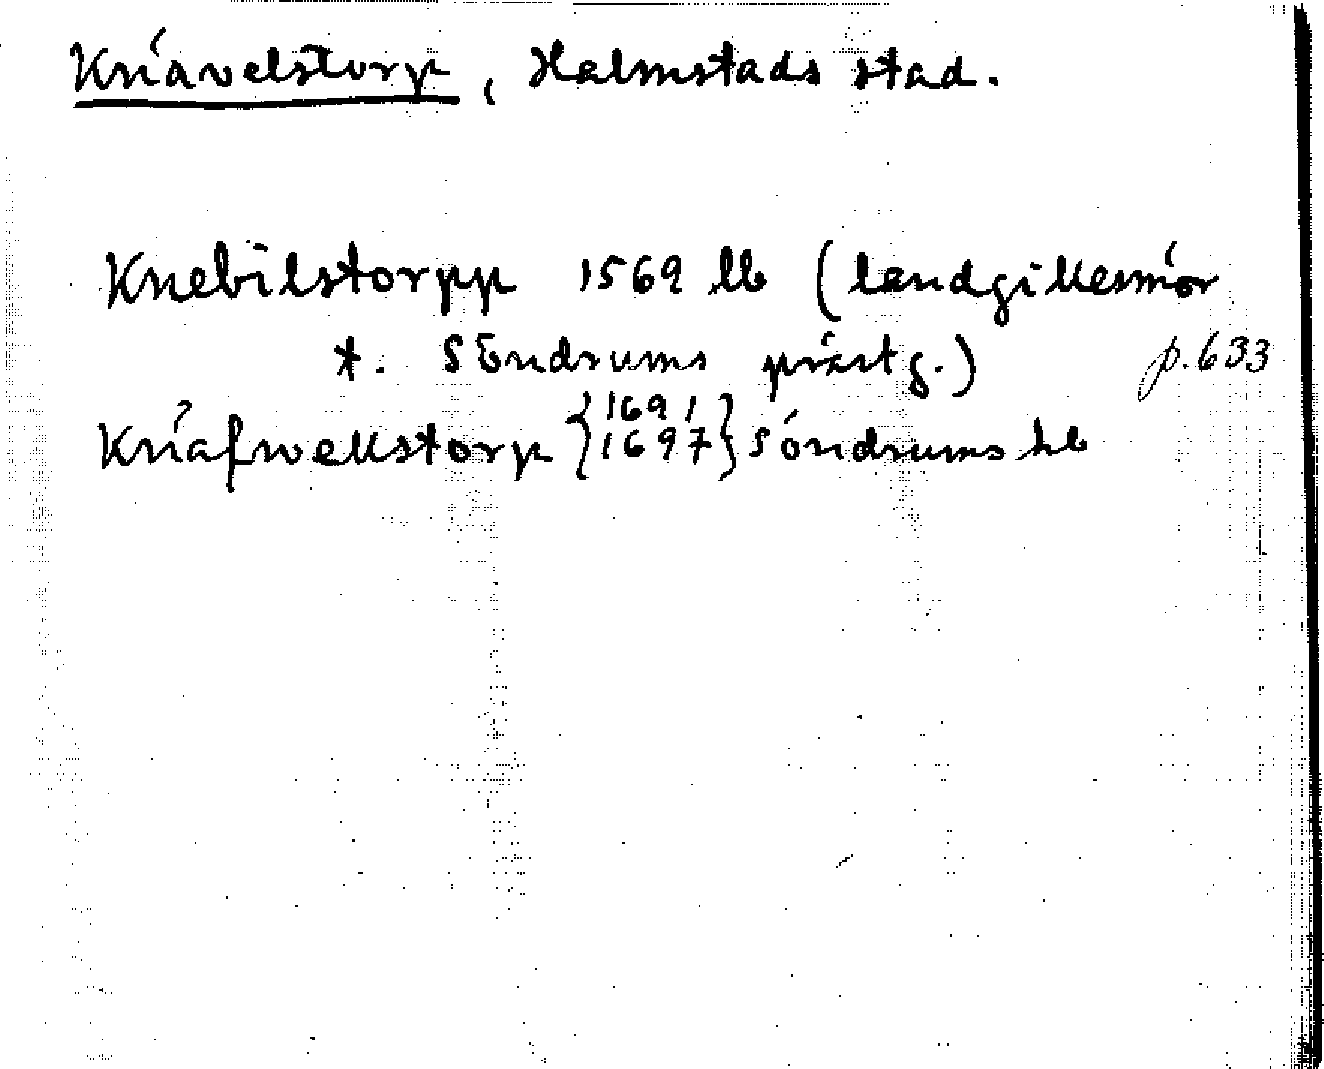 Knävelstorp, Halmstads stad.
Knebilstorpp 1569 lb (landgillesmör
t. Söndrums prästg.) p. 633
Knäfwellstorp {1691 1697} Söndrums hb